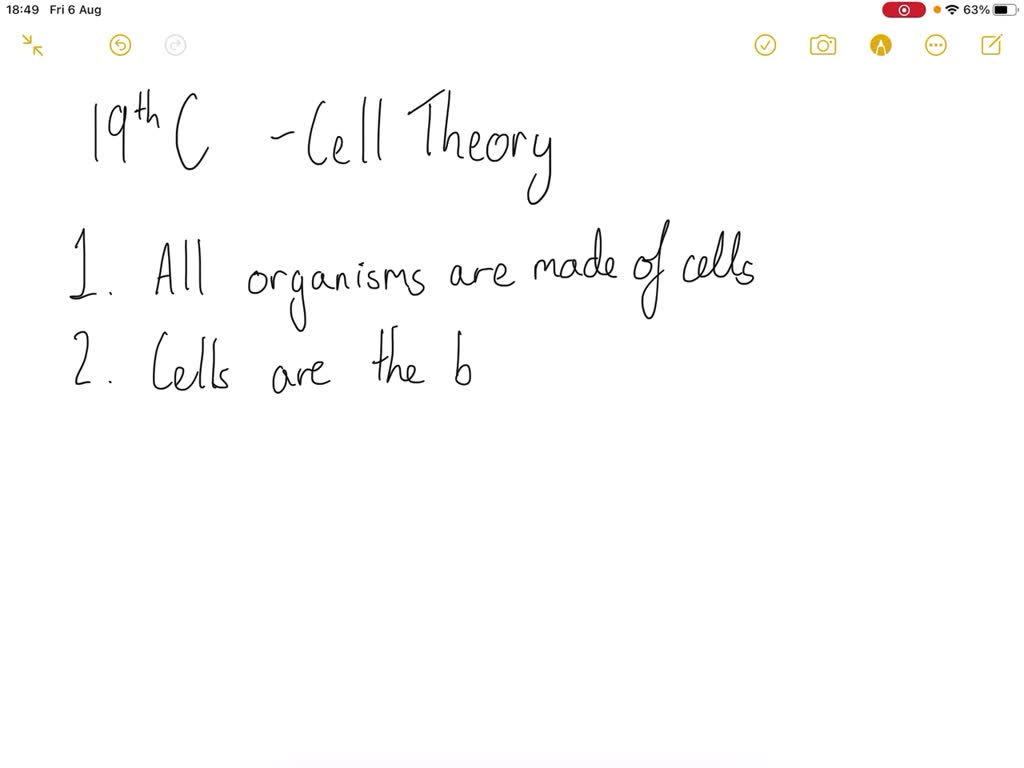 18:49 Fri 6 Aug 63%
19th C - Cell Theory
1. All organisms are made of cells
2. Cells are the b